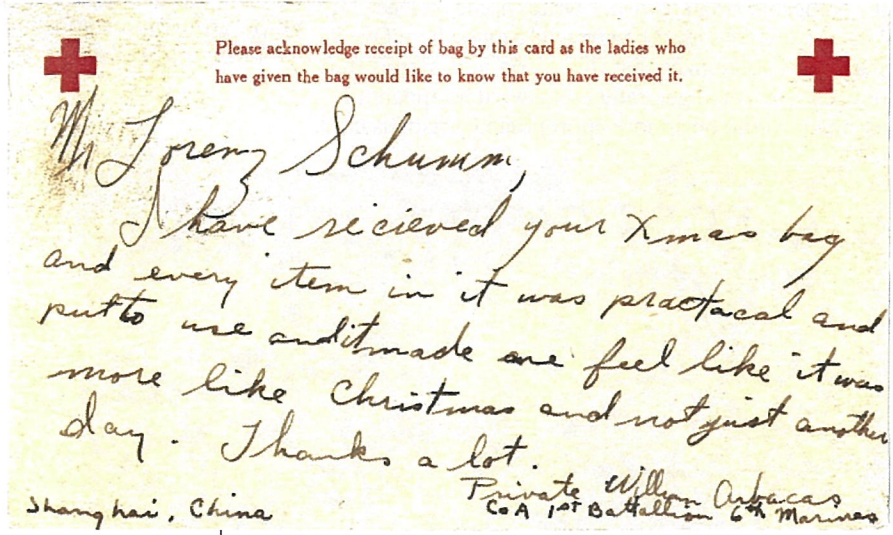 Please acknowledge receipt of bag by this card as the ladies who
have given the bag would like to know that you have received it.
Mr Lorenz Schumm,
I have recieved your Xmas bag
and every item in it was practacal and
put to use and it made one feel like it was
more like Christmas and not just another
day. Thanks a lot.
Private William Arbacas
Shanghai, China
Co A 1st Battallion 6th Marines